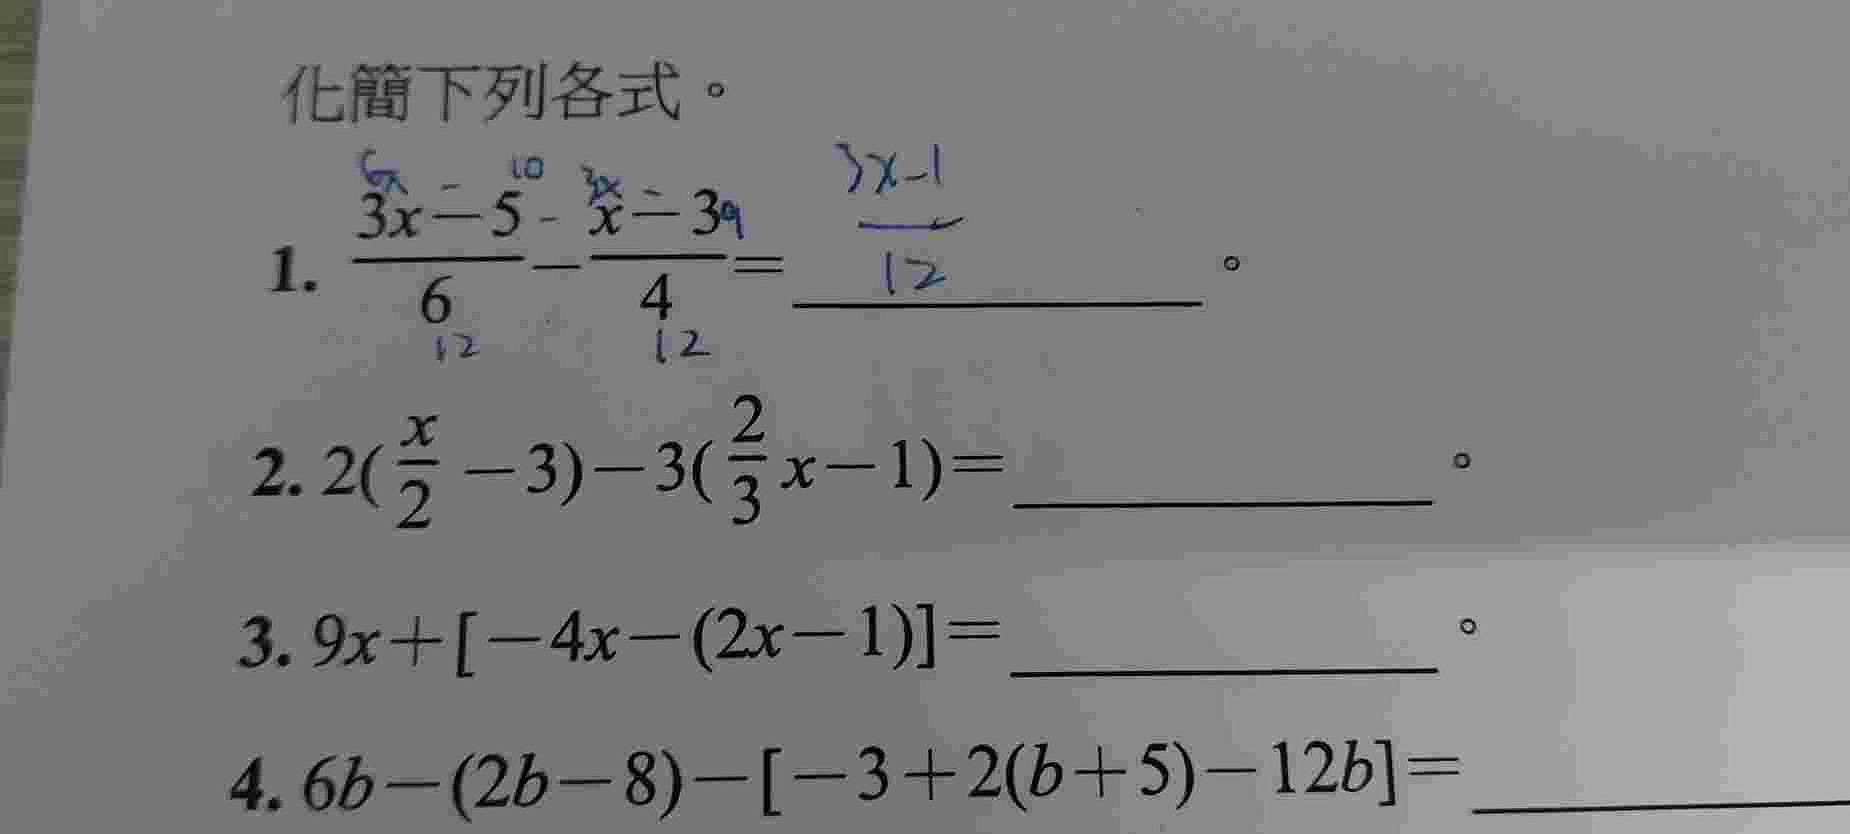 化簡下列各式。
6x - 10 3x - 9 3x-1
1. (3x-5)/6 - (x-3)/4 = ____________。
12 12 12
2. 2(x/2 -3)-3(2/3 x-1)=____________。
3. 9x+[-4x-(2x-1)]=____________。
4. 6b-(2b-8)-[-3+2(b+5)-12b]=____________